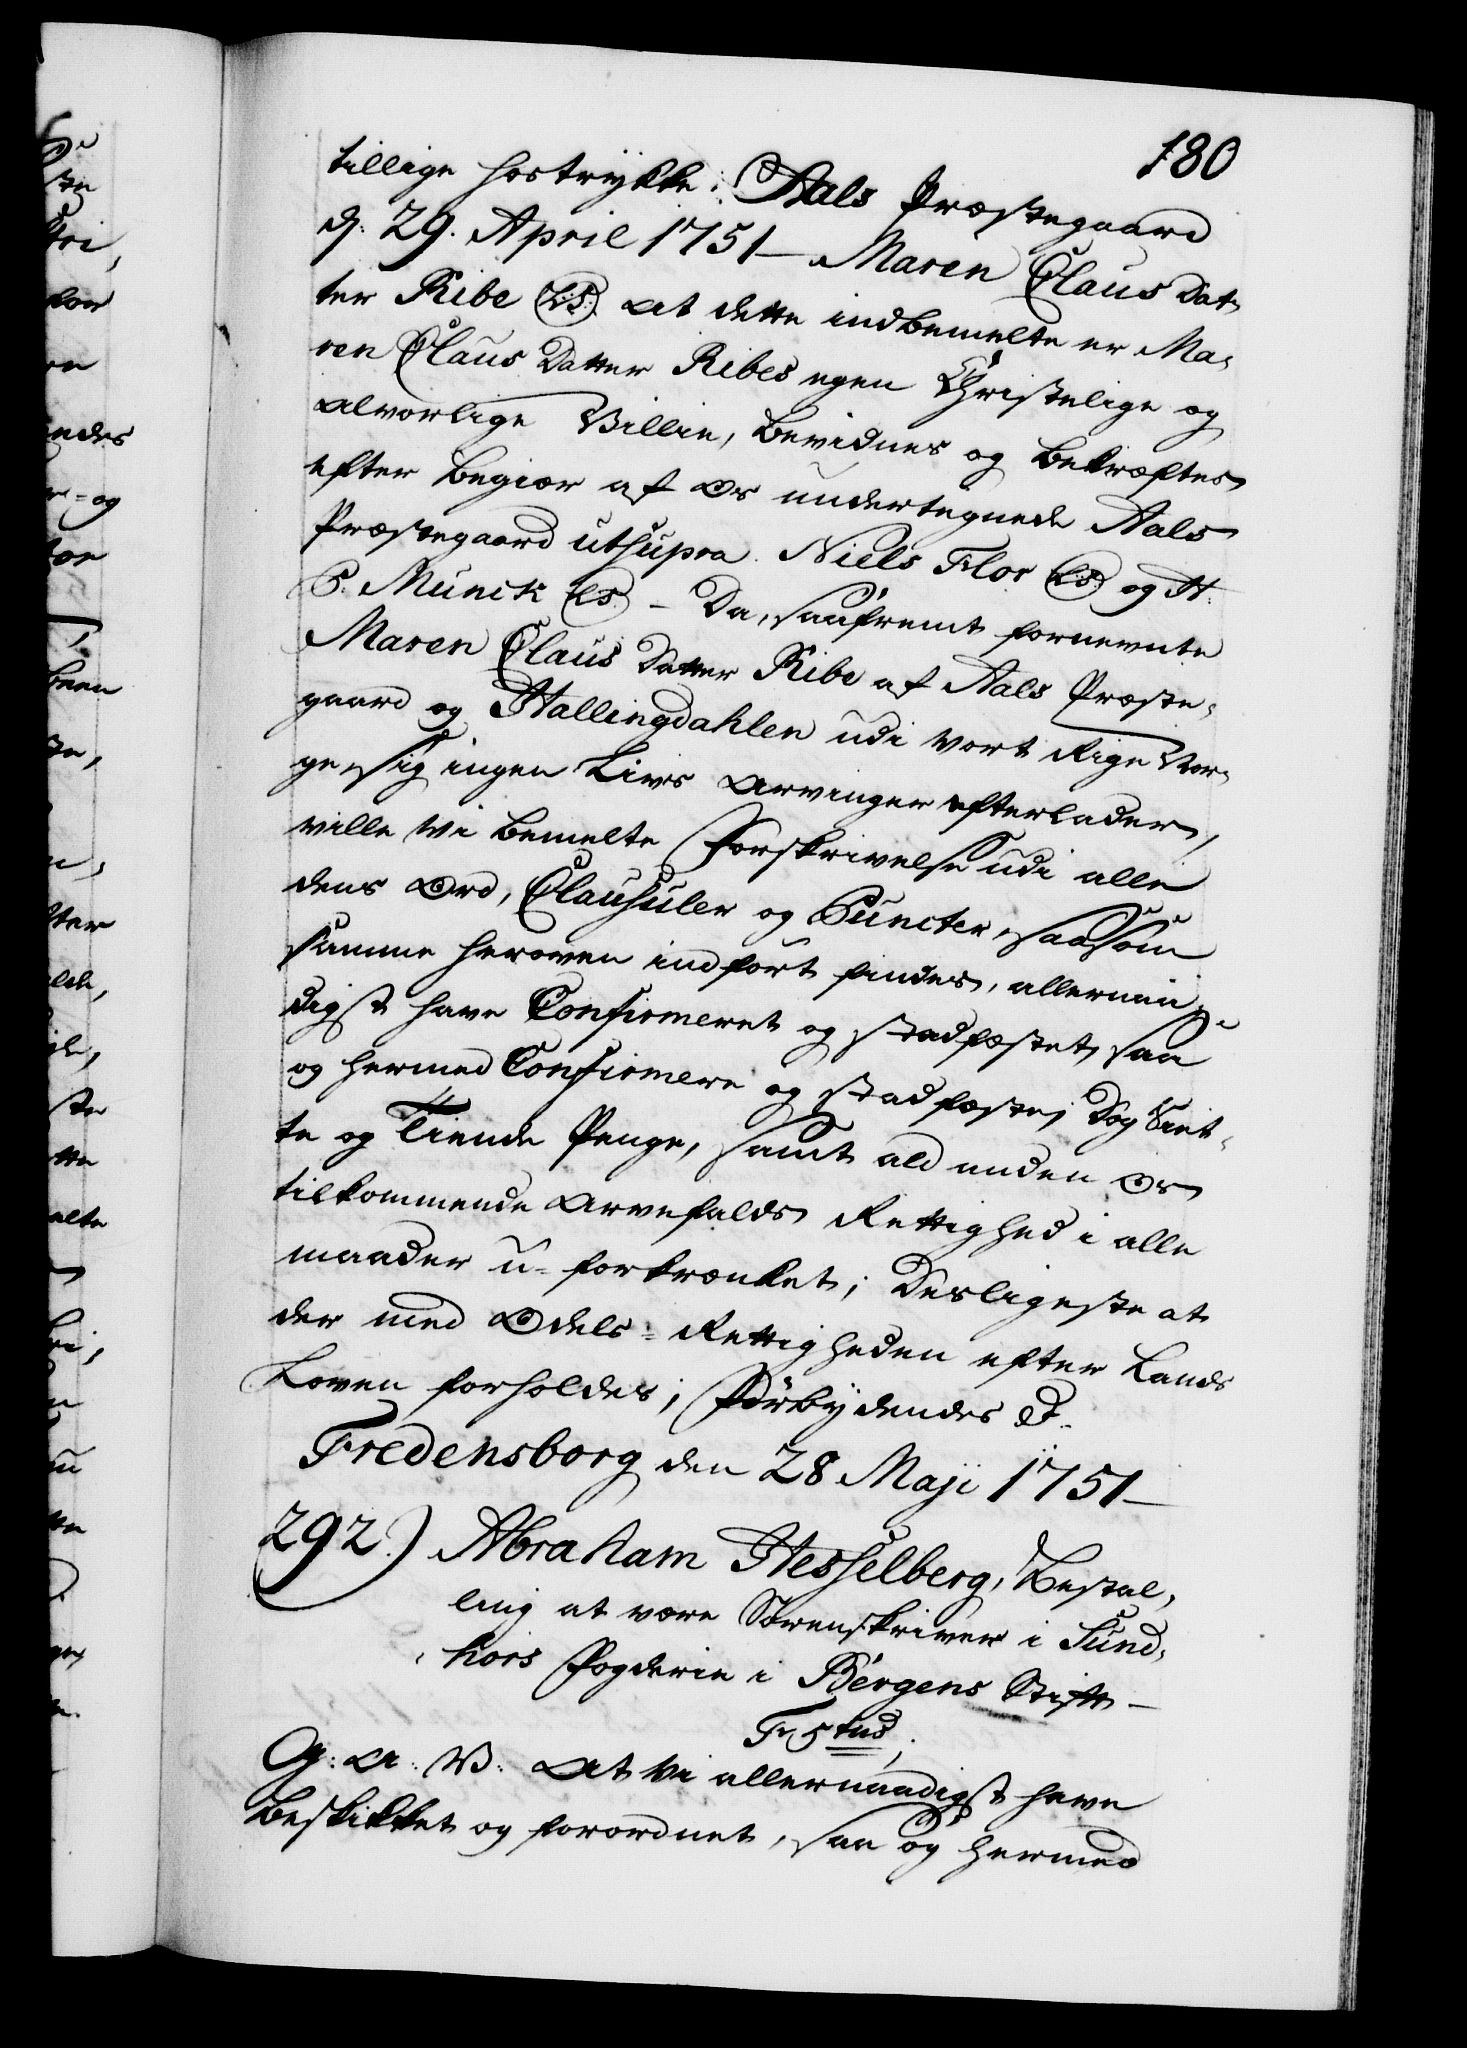 180
tillige hostrykke: Aals Præstegaard
d: 29. April 1751 – Maren Claus Dat-
ter Ribe (LS) At dette indbemelte er Ma-
ren Claus Datter Ribes egen Christelige og
alvorlige Villie, bevidnes og bekræftes
efter begiær af os undertegnede Aals
Præstegaard utsupra. Niels Flor (LS) og H:
P. Munck (LS) – Da, saafremt fornevnte
Maren Claus Datter Ribe af Aals Præste-
gaard og Hallingdahlen udi vort Rige Nor-
ge, sig ingen Livs Arvinger efterlader,
ville Vi bemelte Forskrivelse udi alle
dens Ord, Clausuler og Puncter, saasom
samme heroven indført findes, allernaa-
digst have Confirmeret og stadfæstet, saa
og hermed Confirmere og stadfæste; Dog Siet-
te og Tiende Penge, samt ald anden Os
tilkommende Arvefalds Rettighed i alle
maader u-forkrænket; Desligeste at
der med Odels-Rettigheden efter Lands
Loven forholdes; Forbydendes &
Fredensborg den 28 Maji 1751 –
292.) Abraham Hesselberg, Bestal-
ling at være Sorenskriver i Sund-
hors Fogderie i Bergens Stift –
F 5tus;
G: A: V: At Vi allernaadigst have
beskikket og forordnet, saa og hermed